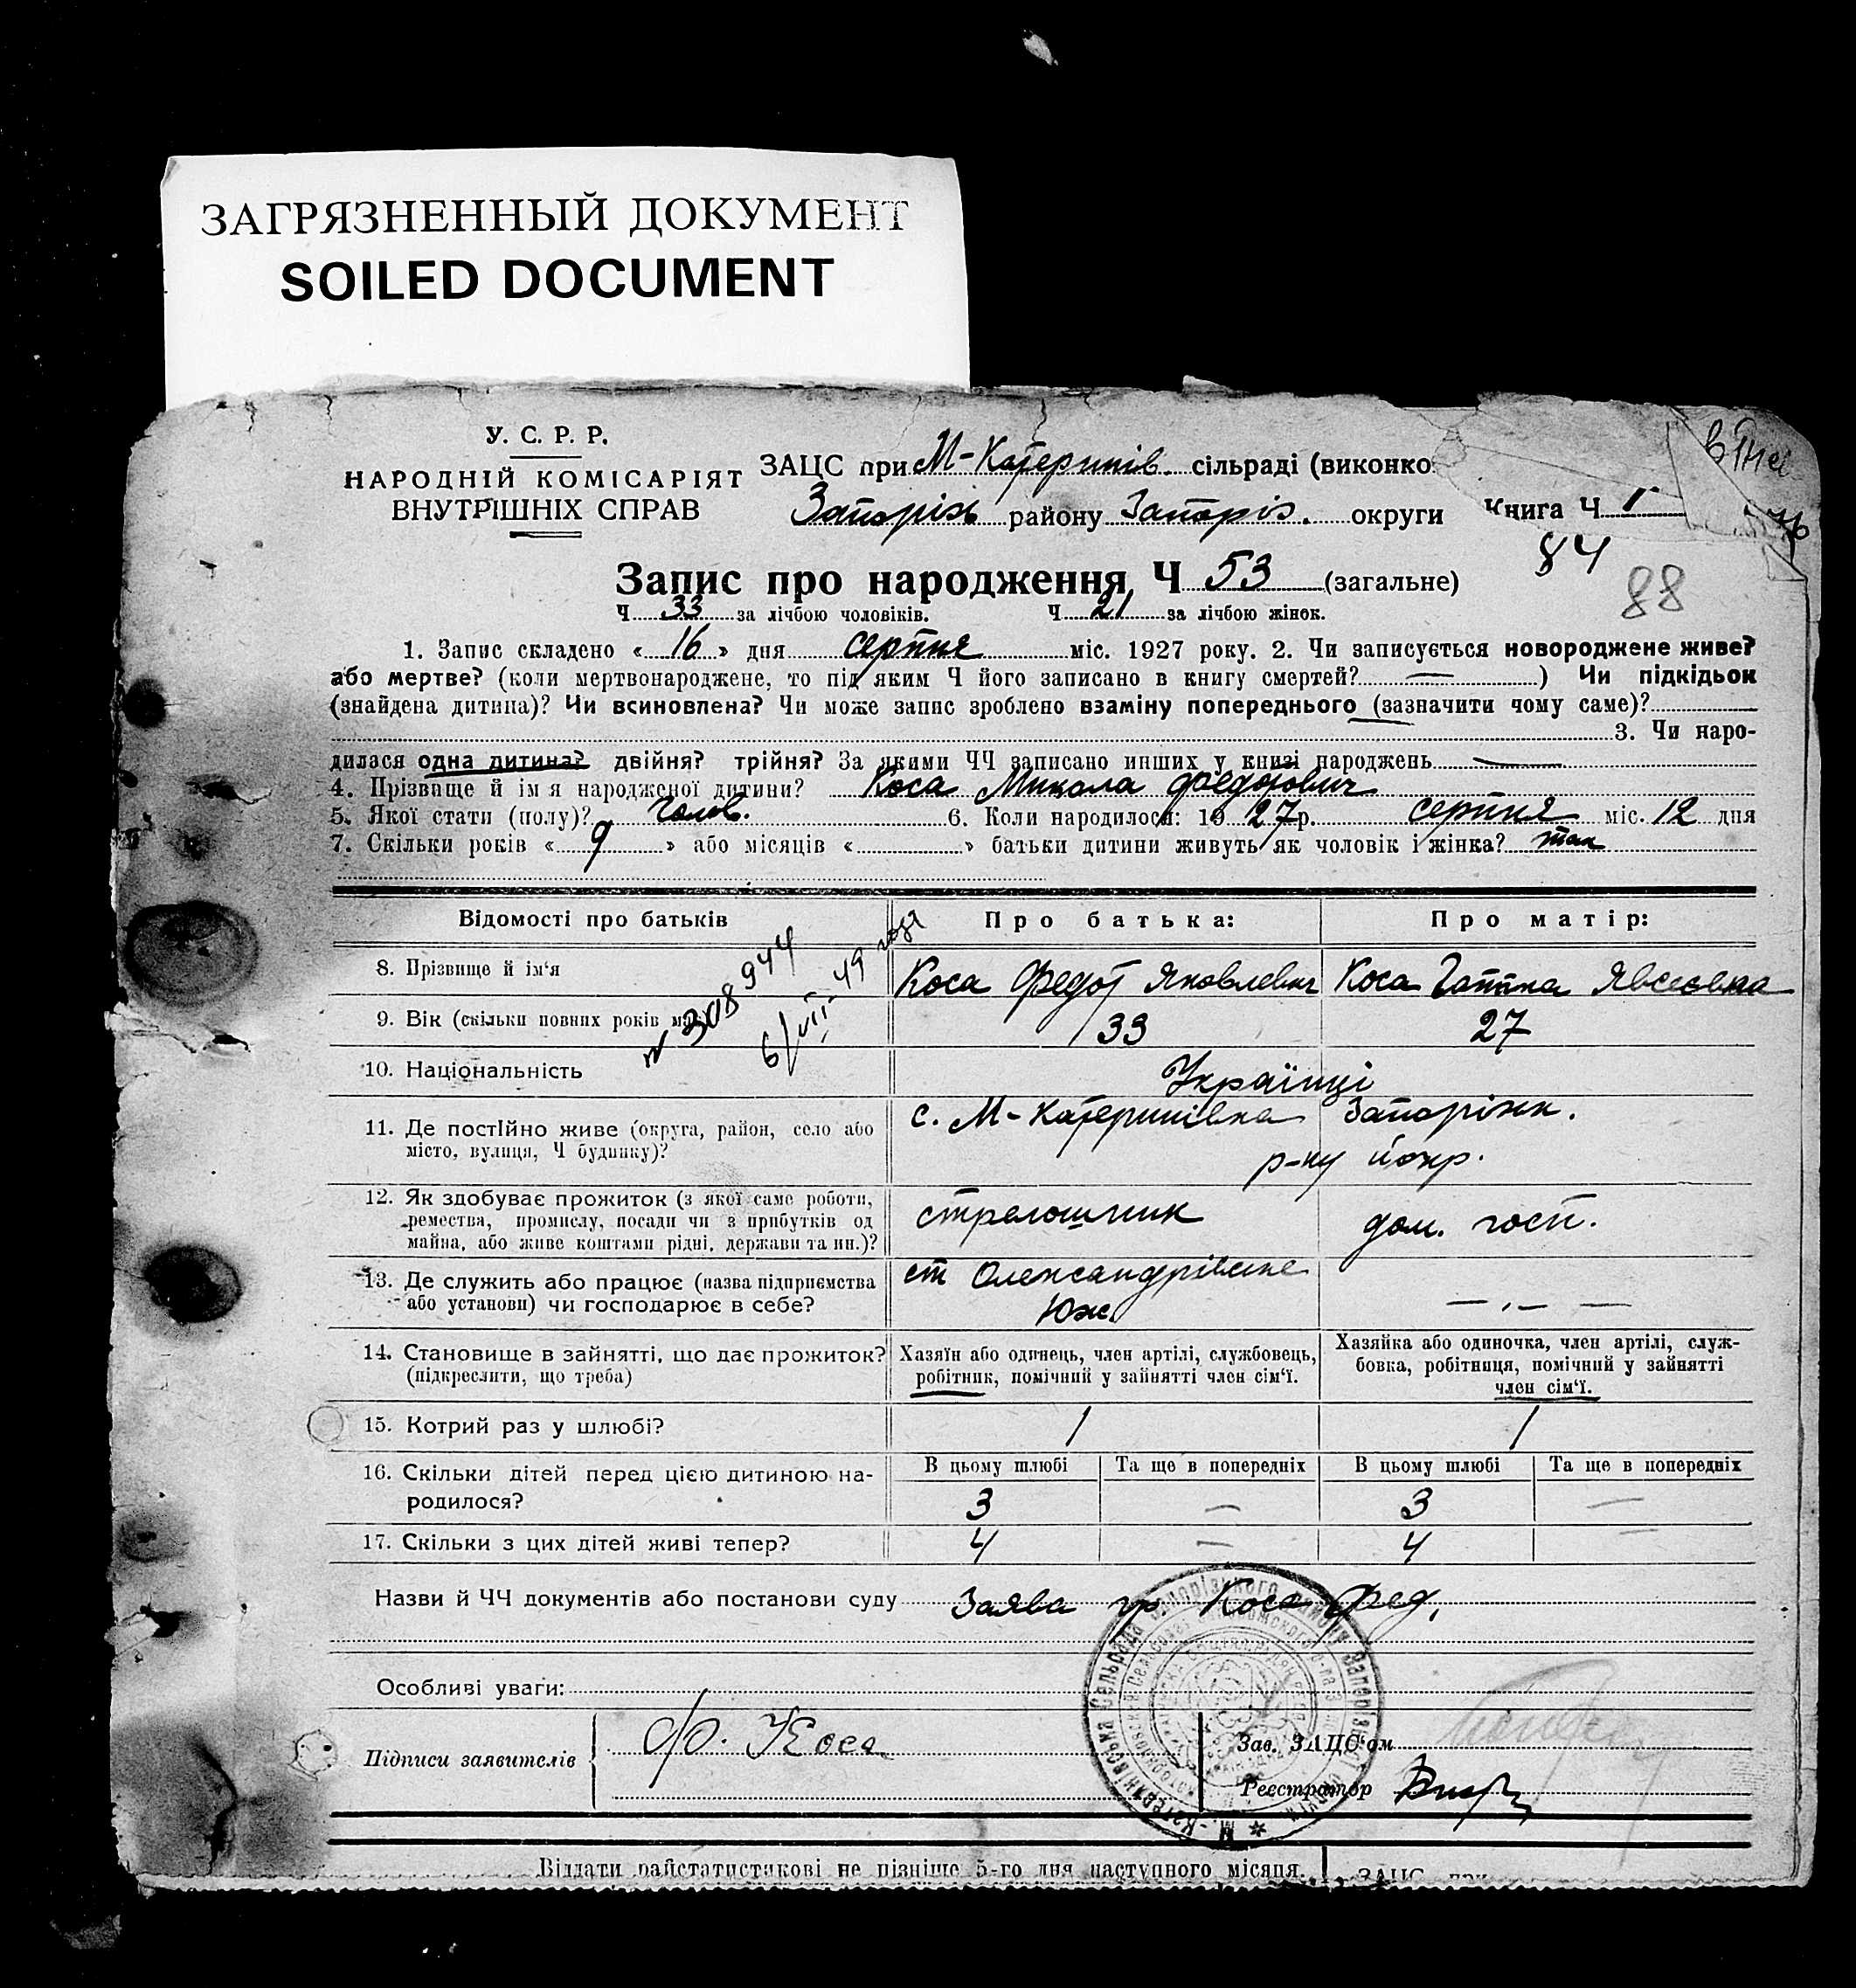 ЗАГРЯЗНЕННЫЙ ДОКУМЕНТ
SOILED DOCUMENT
У. С. Р. Р.
НАРОДНІЙ КОМІСАРІЯТ
ВНУТРІШНІХ СПРАВ
ЗАЦС при М-Катеринів. сільраді (виконко
Запоріж району Запоріз. округи
Книга Ч. 1
84
88
Запис про народження Ч 53 (загальне)
Ч 33 за лічбою чоловіків. Ч 21 за лічбою жінок.
1. Запис складено « 16 » дня серпня міс. 1927 року. 2. Чи записується новороджене живе?
або мертве? (коли мертвонароджене, то під яким Ч його записано в книгу смертей? — ) Чи підкідьок
(знайдена дитина)? Чи всиновлена? Чи може запис зроблено взаміну попереднього (зазначити чому саме)?
3. Чи наро-
дилася одна дитина? двійня? трійня? За якими ЧЧ записано инших у книзі народжень —
4. Прізвище й ім'я народженої дитини? Коса Микола Федорович
5. Якої стати (полу)? чолов. 6. Коли народилося: 1927 р. серпня міс. 12 дня
7. Скільки років « 9 » або місяців « » батьки дитини живуть як чоловік і жінка? так
Відомості про батьків Про батька: Про матір:
8. Прізвище й ім'я Коса Федот Яковлевич Коса Гапка Явсеевна
9. Вік (скільки повних років має) 33 27
№ 308944
6/VII-49
10. Національність Українці
11. Де постійно живе (округа, район, село або
місто, вулиця, Ч будинку)?
с. М-Катеринівка Запоріжж.
р-ну й окр.
12. Як здобуває прожиток (з якої саме роботи,
ремества, промислу, посади чи з прибутків од
майна, або живе коштами рідні, держави та ин.)?
стрелошник дом. госп.
13. Де служить або працює (назва підприємства
або установи) чи господарює в себе?
ст Олександрівське
Юж.
— „ —
14. Становище в зайнятті, що дає прожиток?
(підкреслити, що треба)
Хазяїн або одинець, член артілі, службовець,
робітник, помічний у зайнятті член сім'ї.
Хазяйка або одиночка, член артілі, служ-
бовка, робітниця, помічний у зайнятті
член сім'ї.
15. Котрий раз у шлюбі? 1 1
16. Скільки дітей перед цією дитиною на-
родилося?
В цьому шлюбі Та ще в попередніх В цьому шлюбі Та ще в попередніх
3 — 3 —
17. Скільки з цих дітей живі тепер? 4 — 4 —
Назви й ЧЧ документів або постанови суду Заява гр Коса Фед.
Особливі уваги:
Підписи заявителів Ф. Коса
Зав. ЗАЦС'ом
Реєстратор
М.-Катеринівська Сельрада Запорізького району Запорізької округи
Віддати райстатистикові не пізніше 5-го дня наступного місяця.
ЗАЦС при